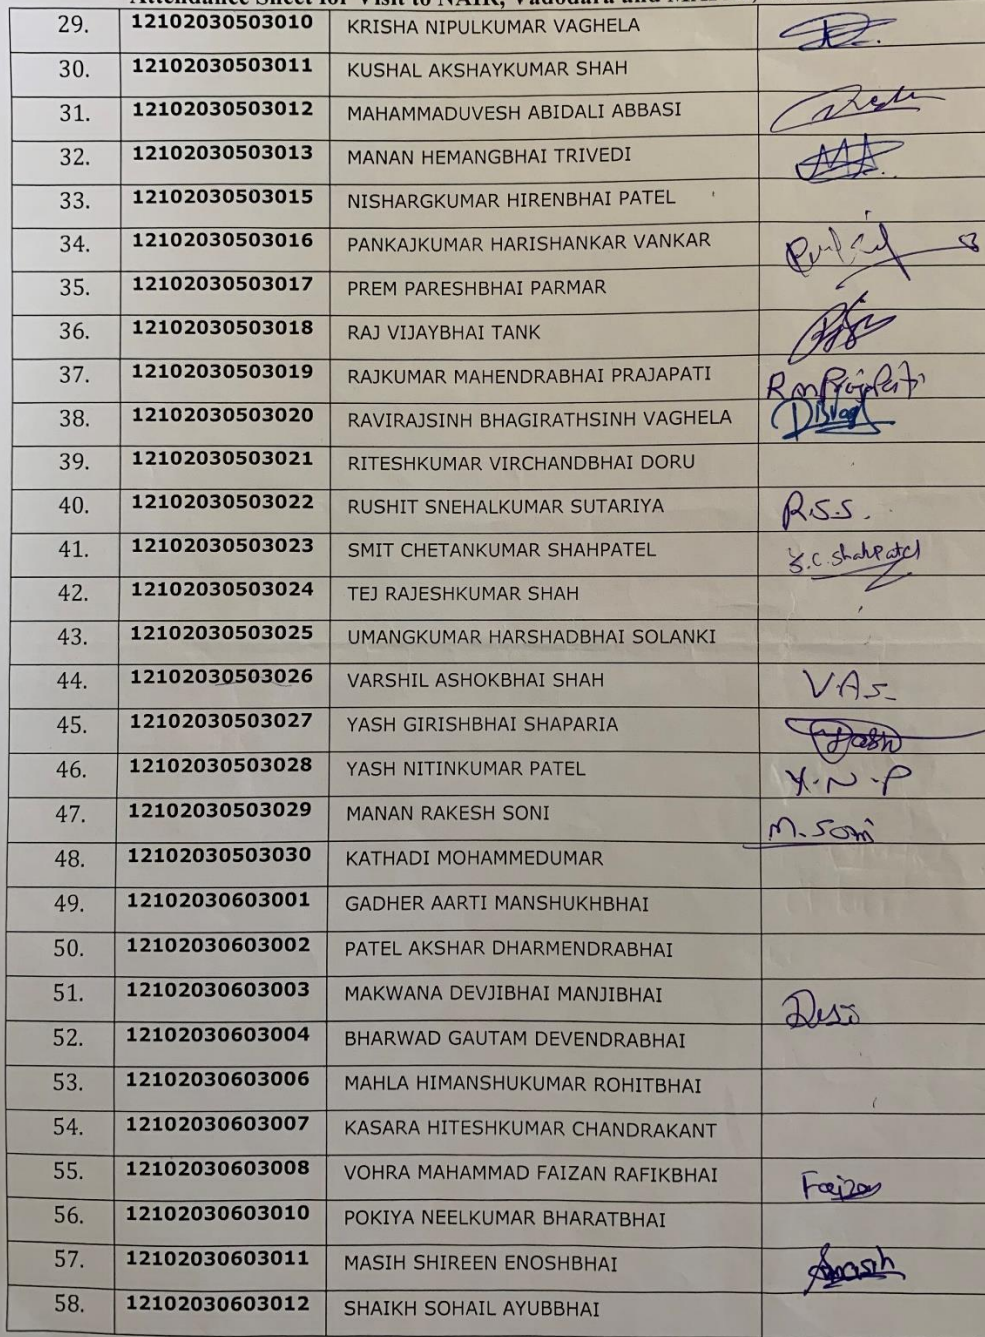 Attendance Sheet for Visit to NAIR, Vadodara and
29. 12102030503010 KRISHA NIPULKUMAR VAGHELA
30. 12102030503011 KUSHAL AKSHAYKUMAR SHAH
31. 12102030503012 MAHAMMADUVESH ABIDALI ABBASI
32. 12102030503013 MANAN HEMANGBHAI TRIVEDI
33. 12102030503015 NISHARGKUMAR HIRENBHAI PATEL
34. 12102030503016 PANKAJKUMAR HARISHANKAR VANKAR
35. 12102030503017 PREM PARESHBHAI PARMAR
36. 12102030503018 RAJ VIJAYBHAI TANK
37. 12102030503019 RAJKUMAR MAHENDRABHAI PRAJAPATI
38. 12102030503020 RAVIRAJSINH BHAGIRATHSINH VAGHELA
39. 12102030503021 RITESHKUMAR VIRCHANDBHAI DORU
40. 12102030503022 RUSHIT SNEHALKUMAR SUTARIYA R.S.S.
41. 12102030503023 SMIT CHETANKUMAR SHAHPATEL S.C.ShahPatel
42. 12102030503024 TEJ RAJESHKUMAR SHAH
43. 12102030503025 UMANGKUMAR HARSHADBHAI SOLANKI
44. 12102030503026 VARSHIL ASHOKBHAI SHAH V.A.S.
45. 12102030503027 YASH GIRISHBHAI SHAPARIA Yash
46. 12102030503028 YASH NITINKUMAR PATEL Y.N.P
47. 12102030503029 MANAN RAKESH SONI M.Soni
48. 12102030503030 KATHADI MOHAMMEDUMAR
49. 12102030603001 GADHER AARTI MANSHUKHBHAI
50. 12102030603002 PATEL AKSHAR DHARMENDRABHAI
51. 12102030603003 MAKWANA DEVJIBHAI MANJIBHAI
52. 12102030603004 BHARWAD GAUTAM DEVENDRABHAI
53. 12102030603006 MAHLA HIMANSHUKUMAR ROHITBHAI
54. 12102030603007 KASARA HITESHKUMAR CHANDRAKANT
55. 12102030603008 VOHRA MAHAMMAD FAIZAN RAFIKBHAI Faizan
56. 12102030603010 POKIYA NEELKUMAR BHARATBHAI
57. 12102030603011 MASIH SHIREEN ENOSHBHAI Smasih
58. 12102030603012 SHAIKH SOHAIL AYUBBHAI